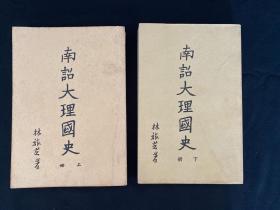 南詔大理國史
林旅芝著
上冊
南詔大理國史
林旅芝著
下冊